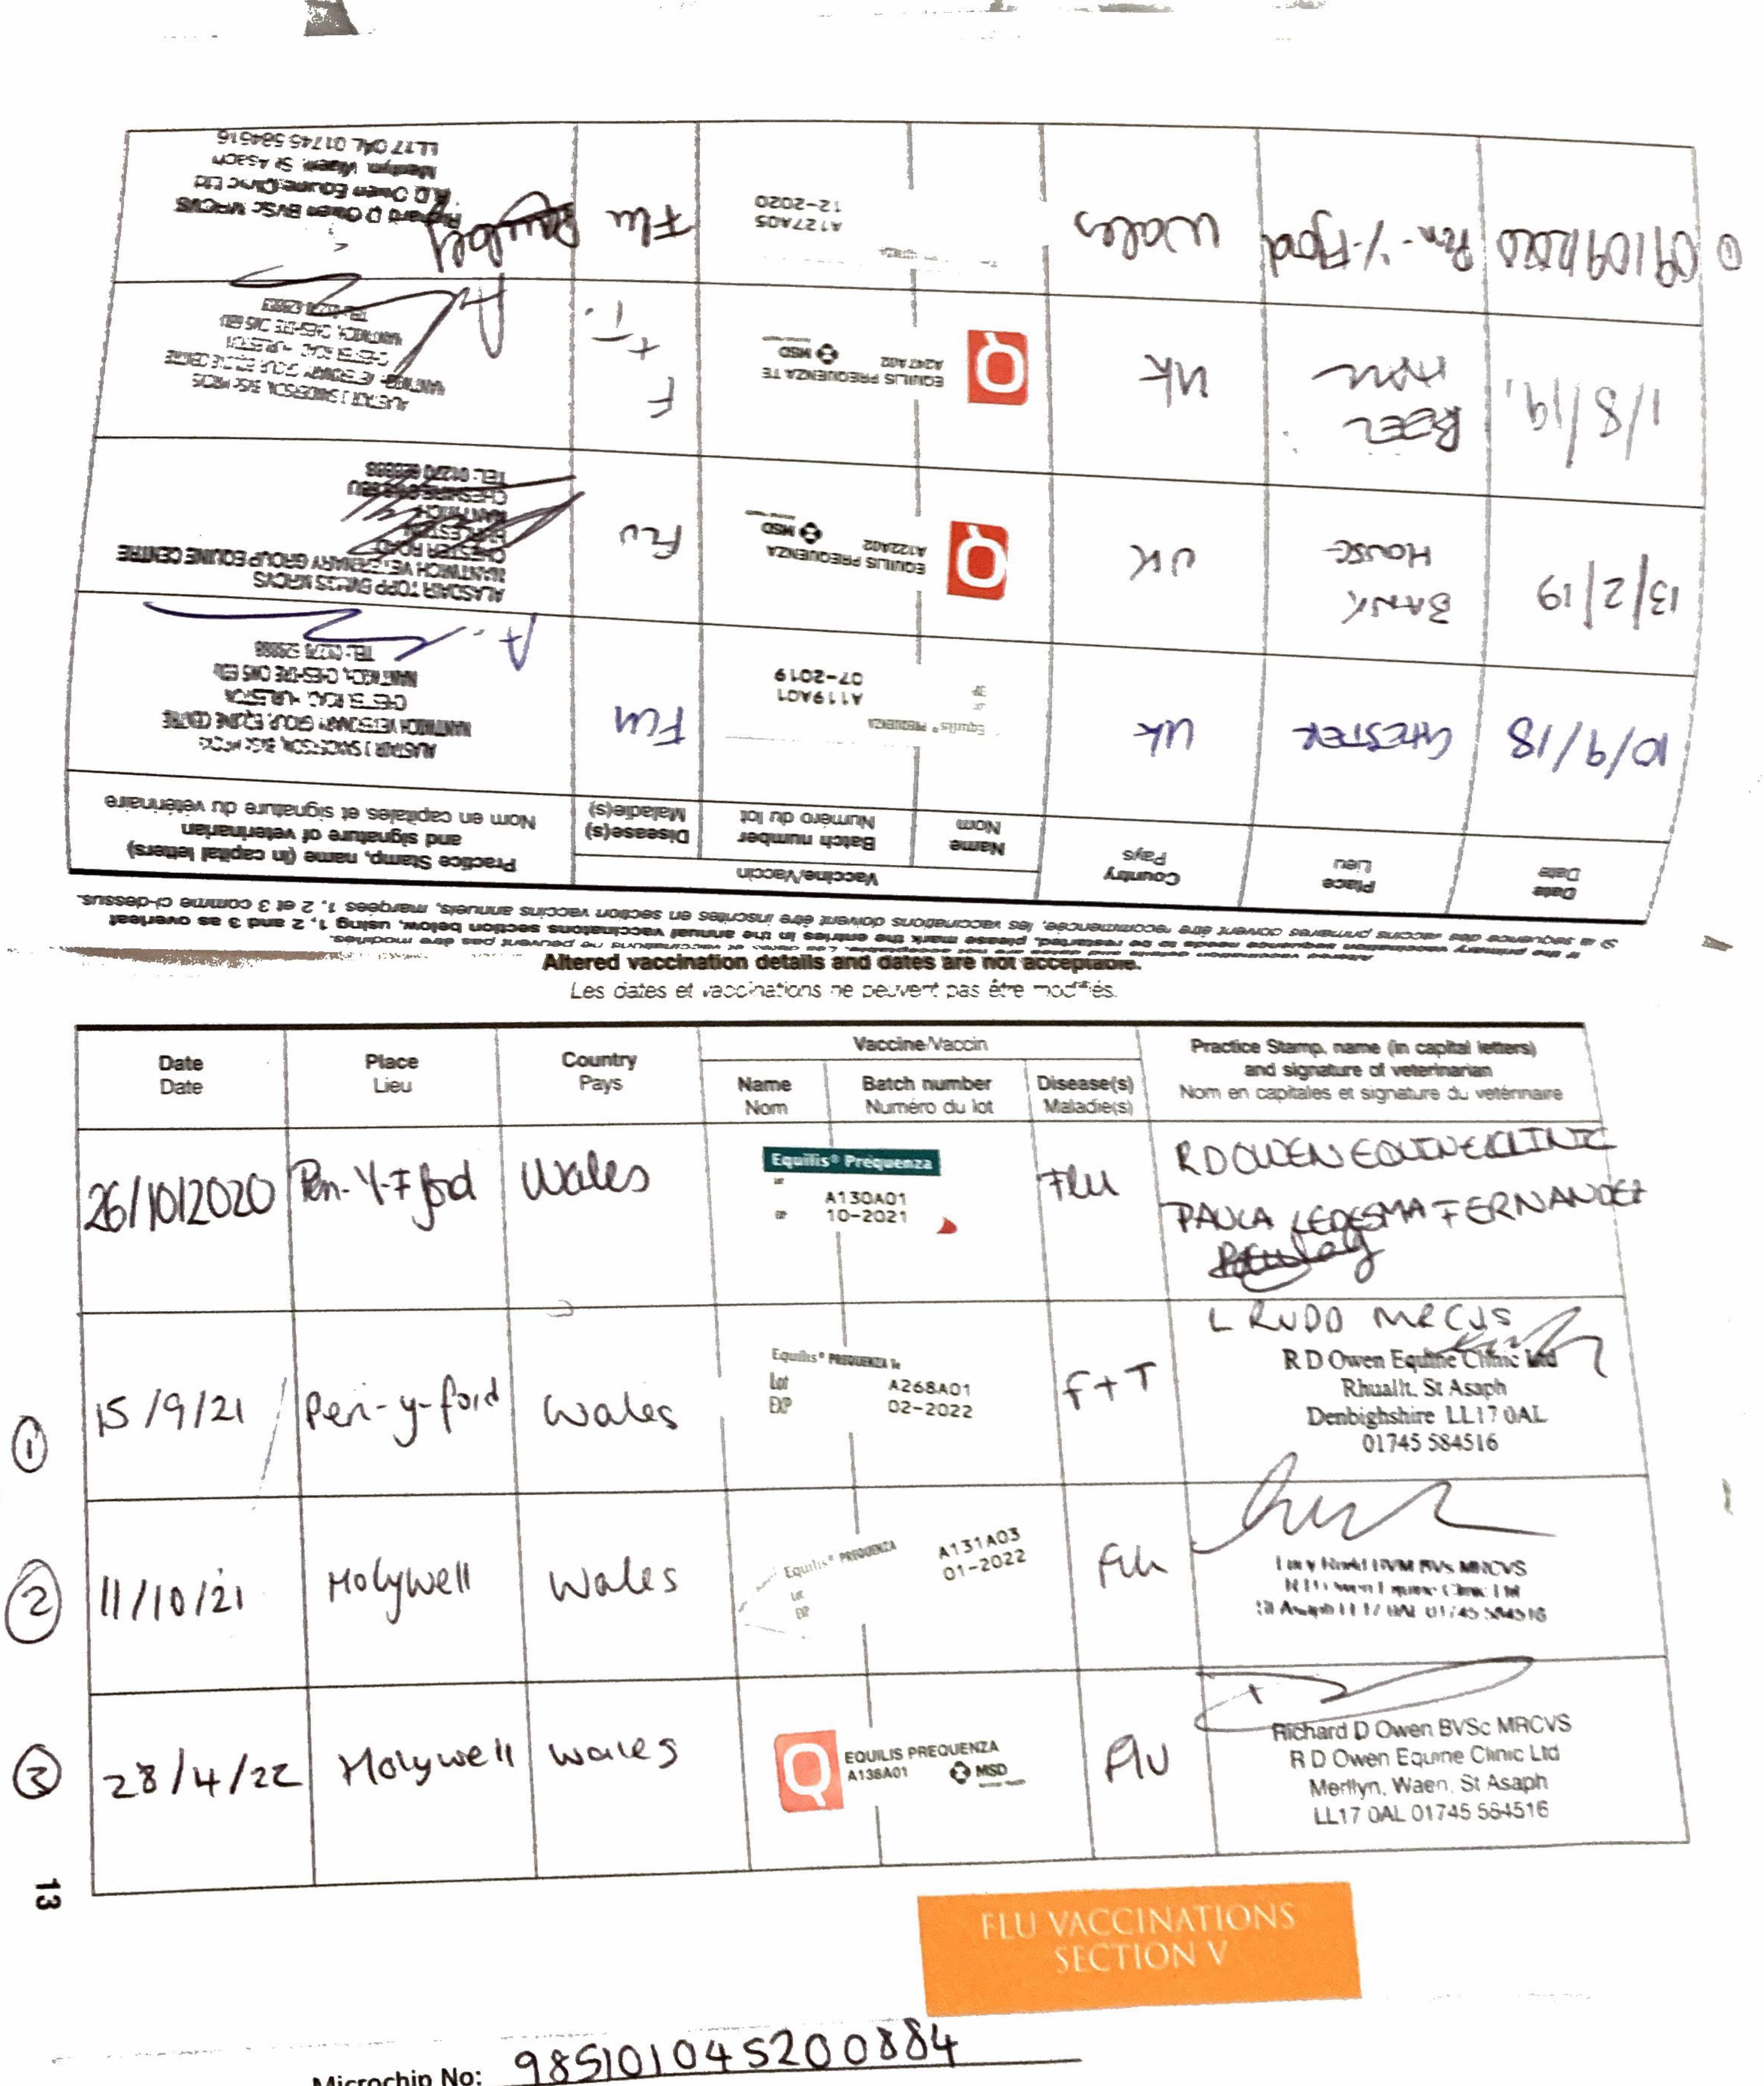 If the primary vaccination sequence needs to be restarted, please mark the entries in the annual vaccinations section below, using 1, 2 and 3 as overleaf
Si la séquence des vaccins primaires doivent être recommencée, les vaccinations doivent être inscrites en section vaccins annuels, marqées 1, 2 et 3 comme ci-dessus.
Date
Date
Place
Lieu
Country
Pays
Vaccine/Vaccin
Name
Nom
Batch number
Numéro du lot
Disease(s)
Maladie(s)
Practice Stamp, name (in capital letters)
and signature of veterinarian
Nom en capitales et signature du vétérinaire
10/9/18
CHESTER
UK
Equilis® PREQUENZA
A119A01
07-2019
FLU
ALASTAIR J SANDERSON, BVSc MRCVS
NANTWICH VETERINARY GROUP, EQUINE CENTRE
CHESTER ROAD, HURLESTON
NANTWICH, CHESHIRE CW5 6BU
13/2/19
BANK
HOUSE
UK
EQUILIS PREQUENZA
A122A02
MSD
FLU
ALASDAIR TOPP BVM&S MRCVS
NANTWICH VETERINARY GROUP EQUINE CENTRE
CHESTER ROAD
HURLESTON
NANTWICH
CHESHIRE
1/8/19
UK
EQUILIS PREQUENZA TE
A247A02
MSD
F
+
T.
ALASTAIR J SANDERSON, BVSc MRCVS
NANTWICH VETERINARY GROUP EQUINE CENTRE
CHESTER ROAD, HURLESTON
NANTWICH, CHESHIRE CW5 6BU
① 09/09/2020
Pen-Y-Ffjod
Wales
A127A05
12-2020
Flu
Richard D Owen BVSc MRCVS
R D Owen Equine Clinic Ltd
Merllyn, Waen, St Asaph
LL17 0AL 01745 584516
Altered vaccination details and dates are not acceptable.
Les dates et vaccinations ne peuvent pas être modifiés.
Date
Date
Place
Lieu
Country
Pays
Vaccine/Vaccin
Name
Nom
Batch number
Numéro du lot
Disease(s)
Maladie(s)
Practice Stamp, name (in capital letters)
and signature of veterinarian
Nom en capitales et signature du vetérinaire
26/10/2020
Pen-Y-Ffjod
Wales
Equilis® Prequenza
A130A01
10-2021
Flu
R D OWEN EQUINE CLINIC
PAULA LEDESMA FERNANDEZ
①
15/9/21
Pen-y-ford
Wales
Equilis® PREQUENZA Te
Lot A268A01
EXP 02-2022
F+T
L RUDD MRCVS
R D Owen Equine Clinic Ltd
Rhuallt, St Asaph
Denbighshire LL17 0AL
01745 584516
②
11/10/21
Holywell
Wales
Equilis® PREQUENZA
A131A03
01-2022
Flu
MRCVS
St Asaph LL17 0AL 01745 584516
③
28/4/22
Holywell
Wales
Q
EQUILIS PREQUENZA
A138A01
MSD
Flu
Richard D Owen BVSc MRCVS
R D Owen Equine Clinic Ltd
Merllyn, Waen, St Asaph
LL17 0AL 01745 584516
13
FLU VACCINATIONS
SECTION V
Microchip No: 985101045200884